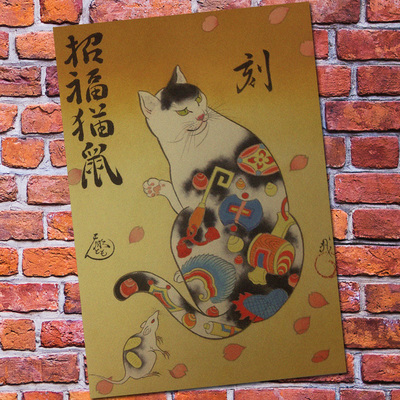 招福猫鼠
刻